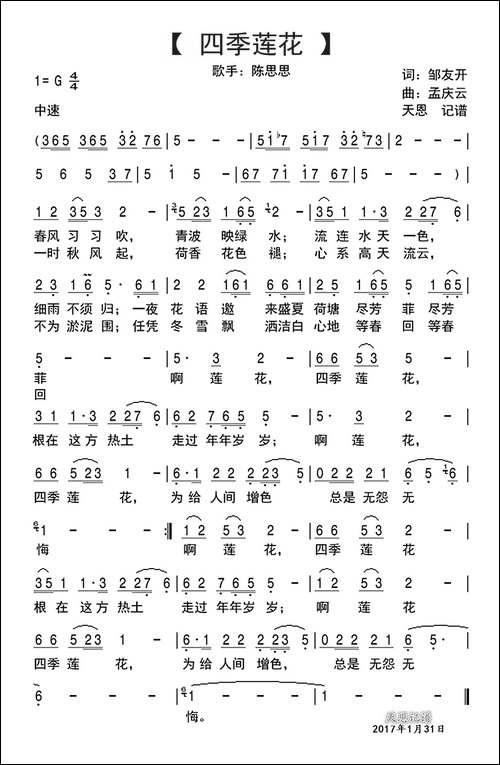 【 四季莲花 】
歌手：陈思思
1=G 4/4
词：邹友开
曲：孟庆云
中速
天恩 记谱
(365 365 32 76 | 5 - - - | 51♭7 51 57 32 ♮73 | 2 - - -
5 6 5 37 | 5 1 5 - | 67 71 17 67 | 5 - - - )
1 2 35 3 2 - | 5 23 1 65 2 - | 35 1 1·3 2 227 6
春风 习 习 吹， 青波 映绿 水； 流 连 水 天 一色，
一时 秋 风 起， 荷香 花色 褪； 心 系 高 天 流云，
23 16 5· 61 | 2 2 2 161 | 61 165 5 165
细雨 不须 归；一夜 花 语 邀 来盛夏 荷塘 尽芳 菲 尽芳
不为 淤泥 围；任凭 冬 雪 飘 洒洁白 心地 等春 回 等春
5 - - - | 5· 3 2 2 - | 6 6 53 2 -
菲 啊 莲 花， 四季 莲 花，
回
31 1·3 2 227 6 | 62 765 5 - | 5· 3 2 -
根在 这 方 热土 走过 年年岁岁 岁； 啊 莲 花，
6 6 5 523 1 - | 6·1 221 6 223 | 0 2 2 2 1 6 5 6
四季 莲 花， 为给 人间 增色 总是 无怨 无
1 - - - :| 1 2 53 2 - | 6 6 53 2 -
悔 啊 莲 花， 四季 莲 花
351 1·3 2 227 6 | 62 765 5 - | 12 53 2 -
根 在 这方 热土 走过 年年岁 岁； 啊 莲 花
6 6 5 523 1 - | 6·1 22 023 5 - | 0 2 2 2 1 6 5· -
四季 莲 花， 为给 人间 增色， 总是 无怨 无
6 - - - | 1 - - - | 1 - - - ||
悔。
2017年1月31日